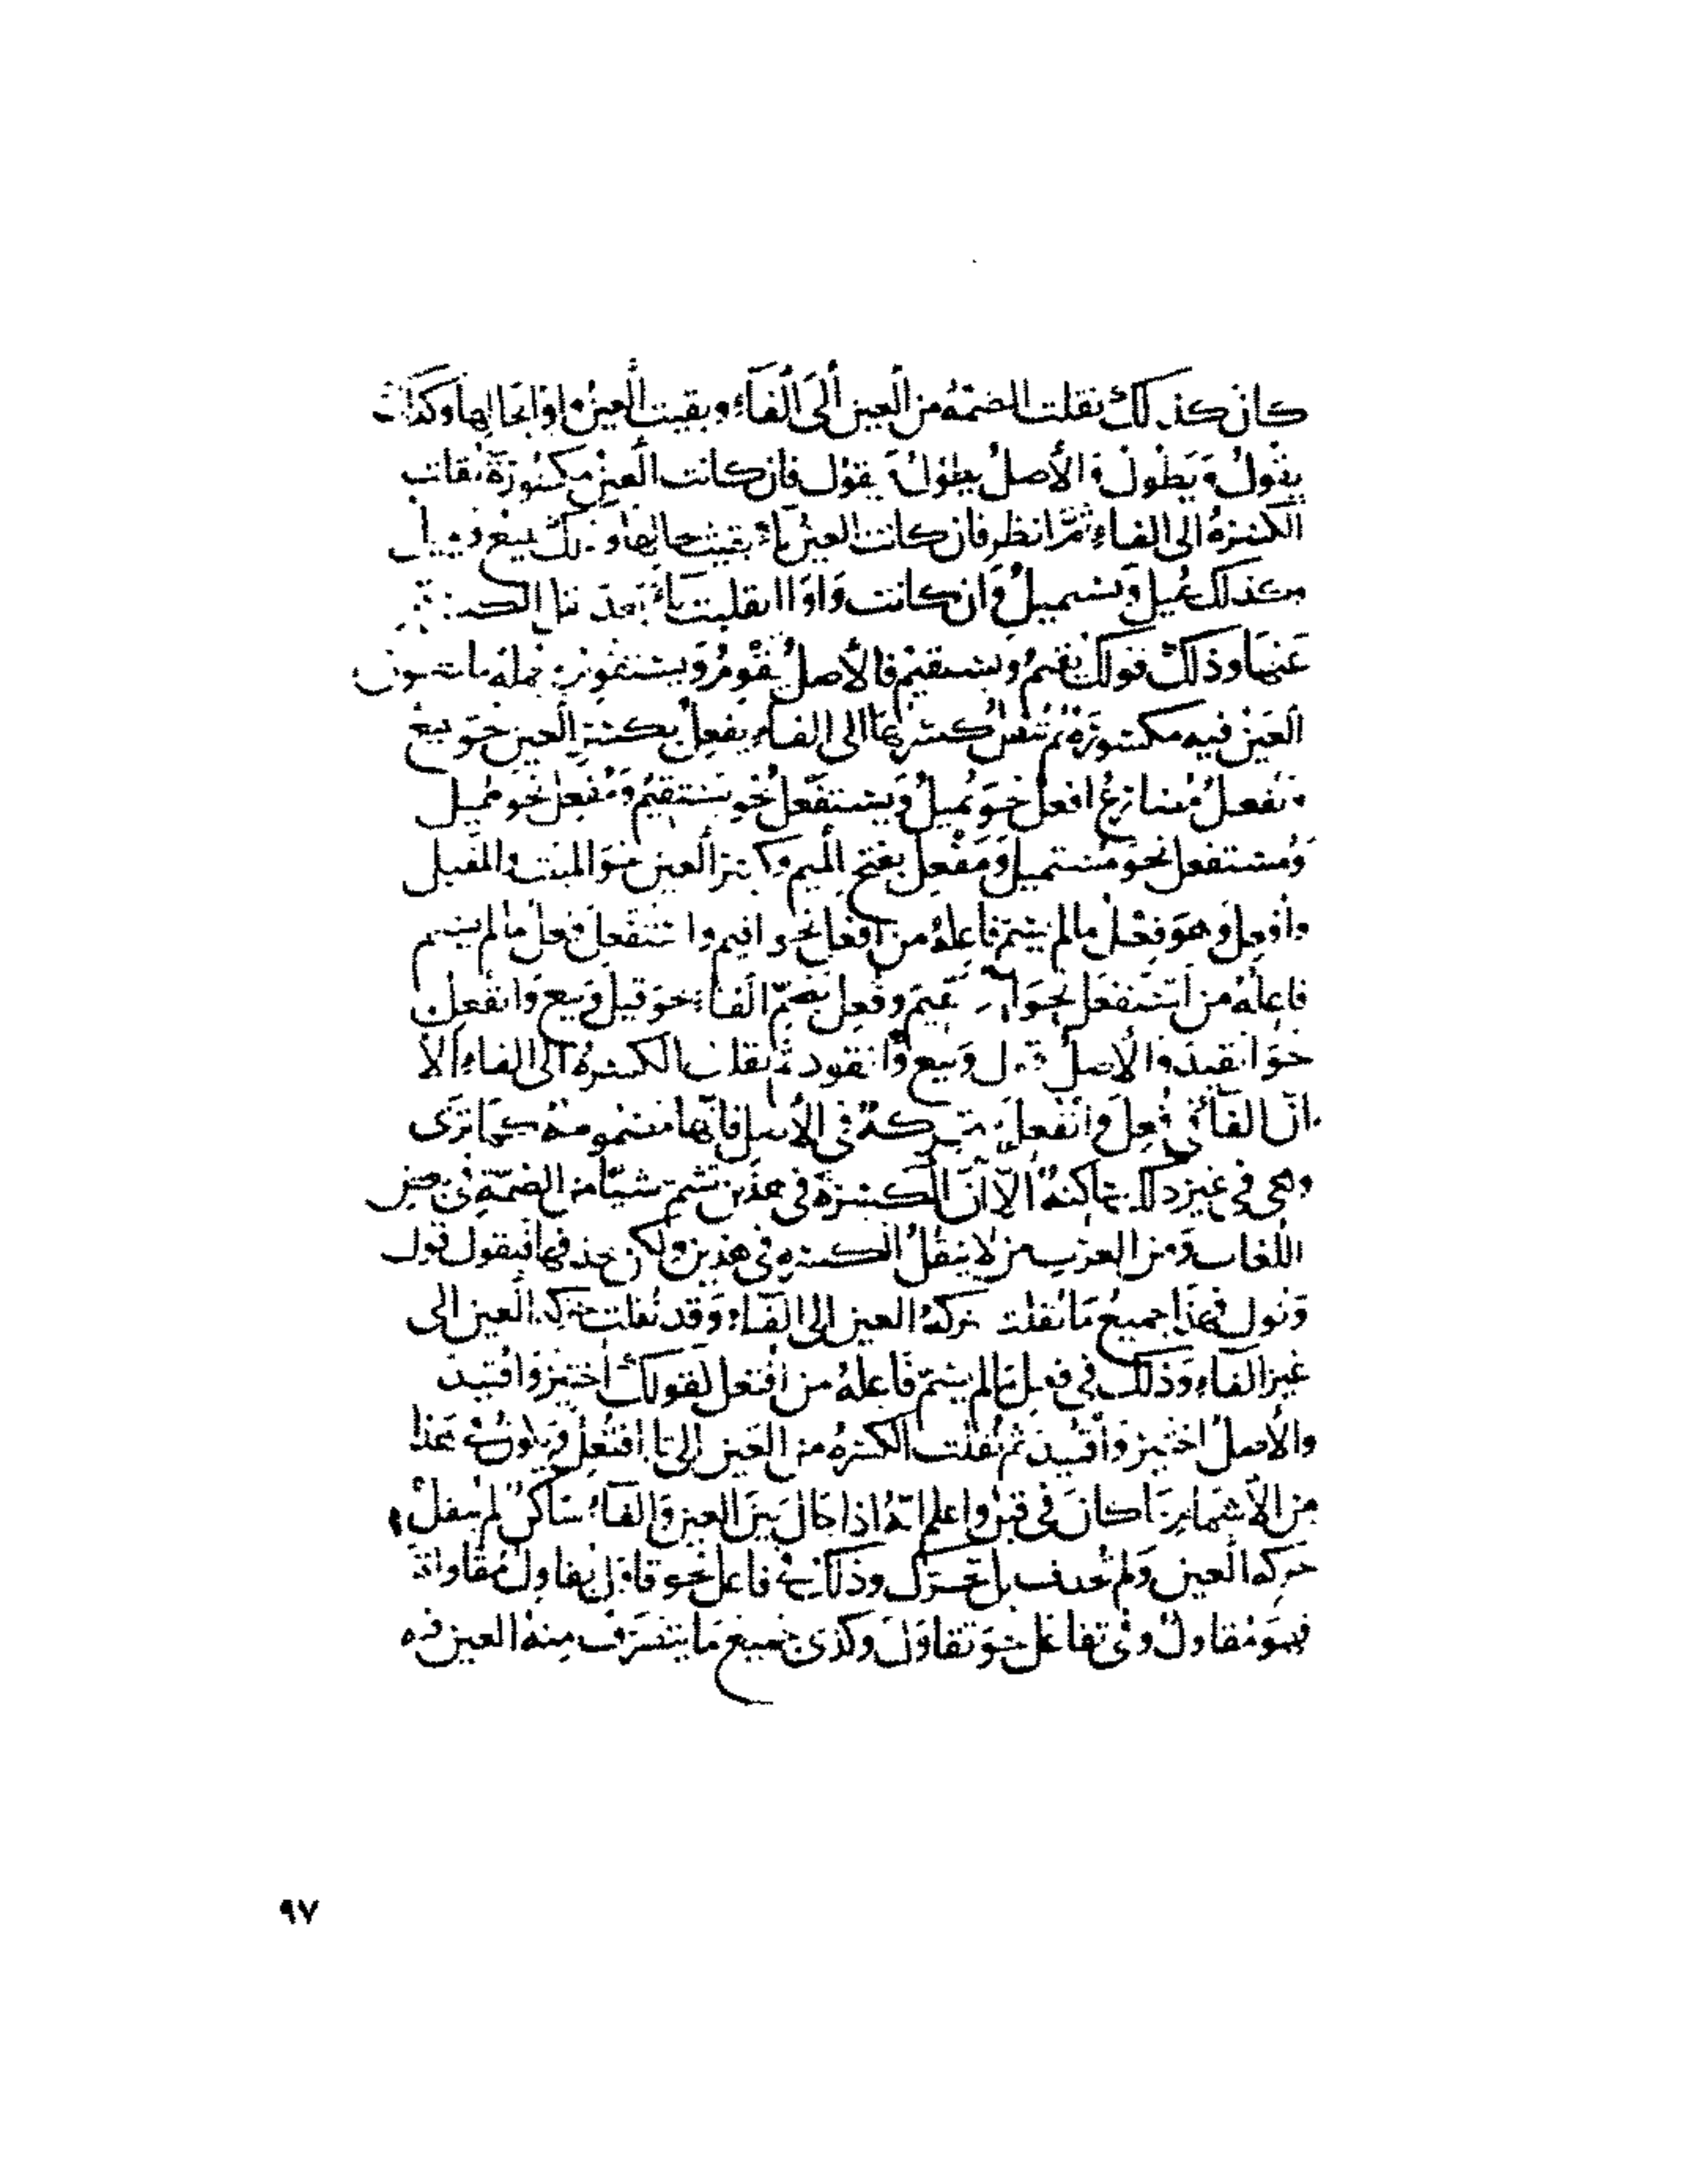 كان كذلك نقلت الضمّة من العين إلى الفاء وبقيت العين واوًا بحالها وكذلك
يقول ويطول والأصل يطول يقول فإن كانت العين مكسورة نقلت
الكسرة إلى الفاء ثم انظر فإن كانت العين ياء بقيت بحالها وذلك يبيع
وكذلك يميل ويستميل وإن كانت واوًا انقلبت ياء بعد نقل الكسرة
عنها وذلك قولك يقيم ويستقيم فالأصل يقوم ويستقوم جملة ما تكون
العين فيه مكسورة ثم تنقل كسرتها إلى الفاء يفعل بكسر العين نحو يبيع
ويفعل مضارع أفعل نحو يميل ويستفعل نحو يستقيم ومفعل نحو مميل
ومستفعل نحو مستميل ومفعل بفتح الميم وكسر العين نحو المبيت والمقيل
وأفعل وهو فعل ما لم يسمّ فاعله من أفعل نحو أقيم واستفعل فعل ما لم يسم
فاعله من استفعل نحو وفعل بضمّ الفاء نحو قيل وبيع وانفعل
نحو انقيد والأصل قول وبيع وانقود ثم نقلت الكسرة إلى الفاء إلا
أنّ الفاء في فعل وانفعل متحركة في الأصل فإنها مضمومة كما ترى
وهي في غير ذلك ساكنة إلا أنّ الكسرة في هذين تشم شيئا من الضمّة في بعض
اللغات ومن العرب من لا ينقل الكسرة في هذين ولكن يحذفها فيقول قول
وبول فهذا جميع ما نقلت حركة العين إلى الفاء وقد نقلت حركة العين إلى
غير الفاء وذلك في فعل ما لم يسمّ فاعله من افتعل كقولك اختير واقتيد
والأصل اختير واقتيد ثم نقلت الكسرة من العين إلى تاء افتعل ويكون في هذا
من الإشمام ما كان في قيل واعلم أنّه إذا حال بين العين والفاء ساكن لم تنقل
حركة العين ولم تحذف بل تحرّك وذلك في فاعل نحو قاول يقاول مقاولة
فهو مقاول وفي تفاعل نحو تقاول وكذى جميع ما يتصرّف منه العين فيه
٩٧